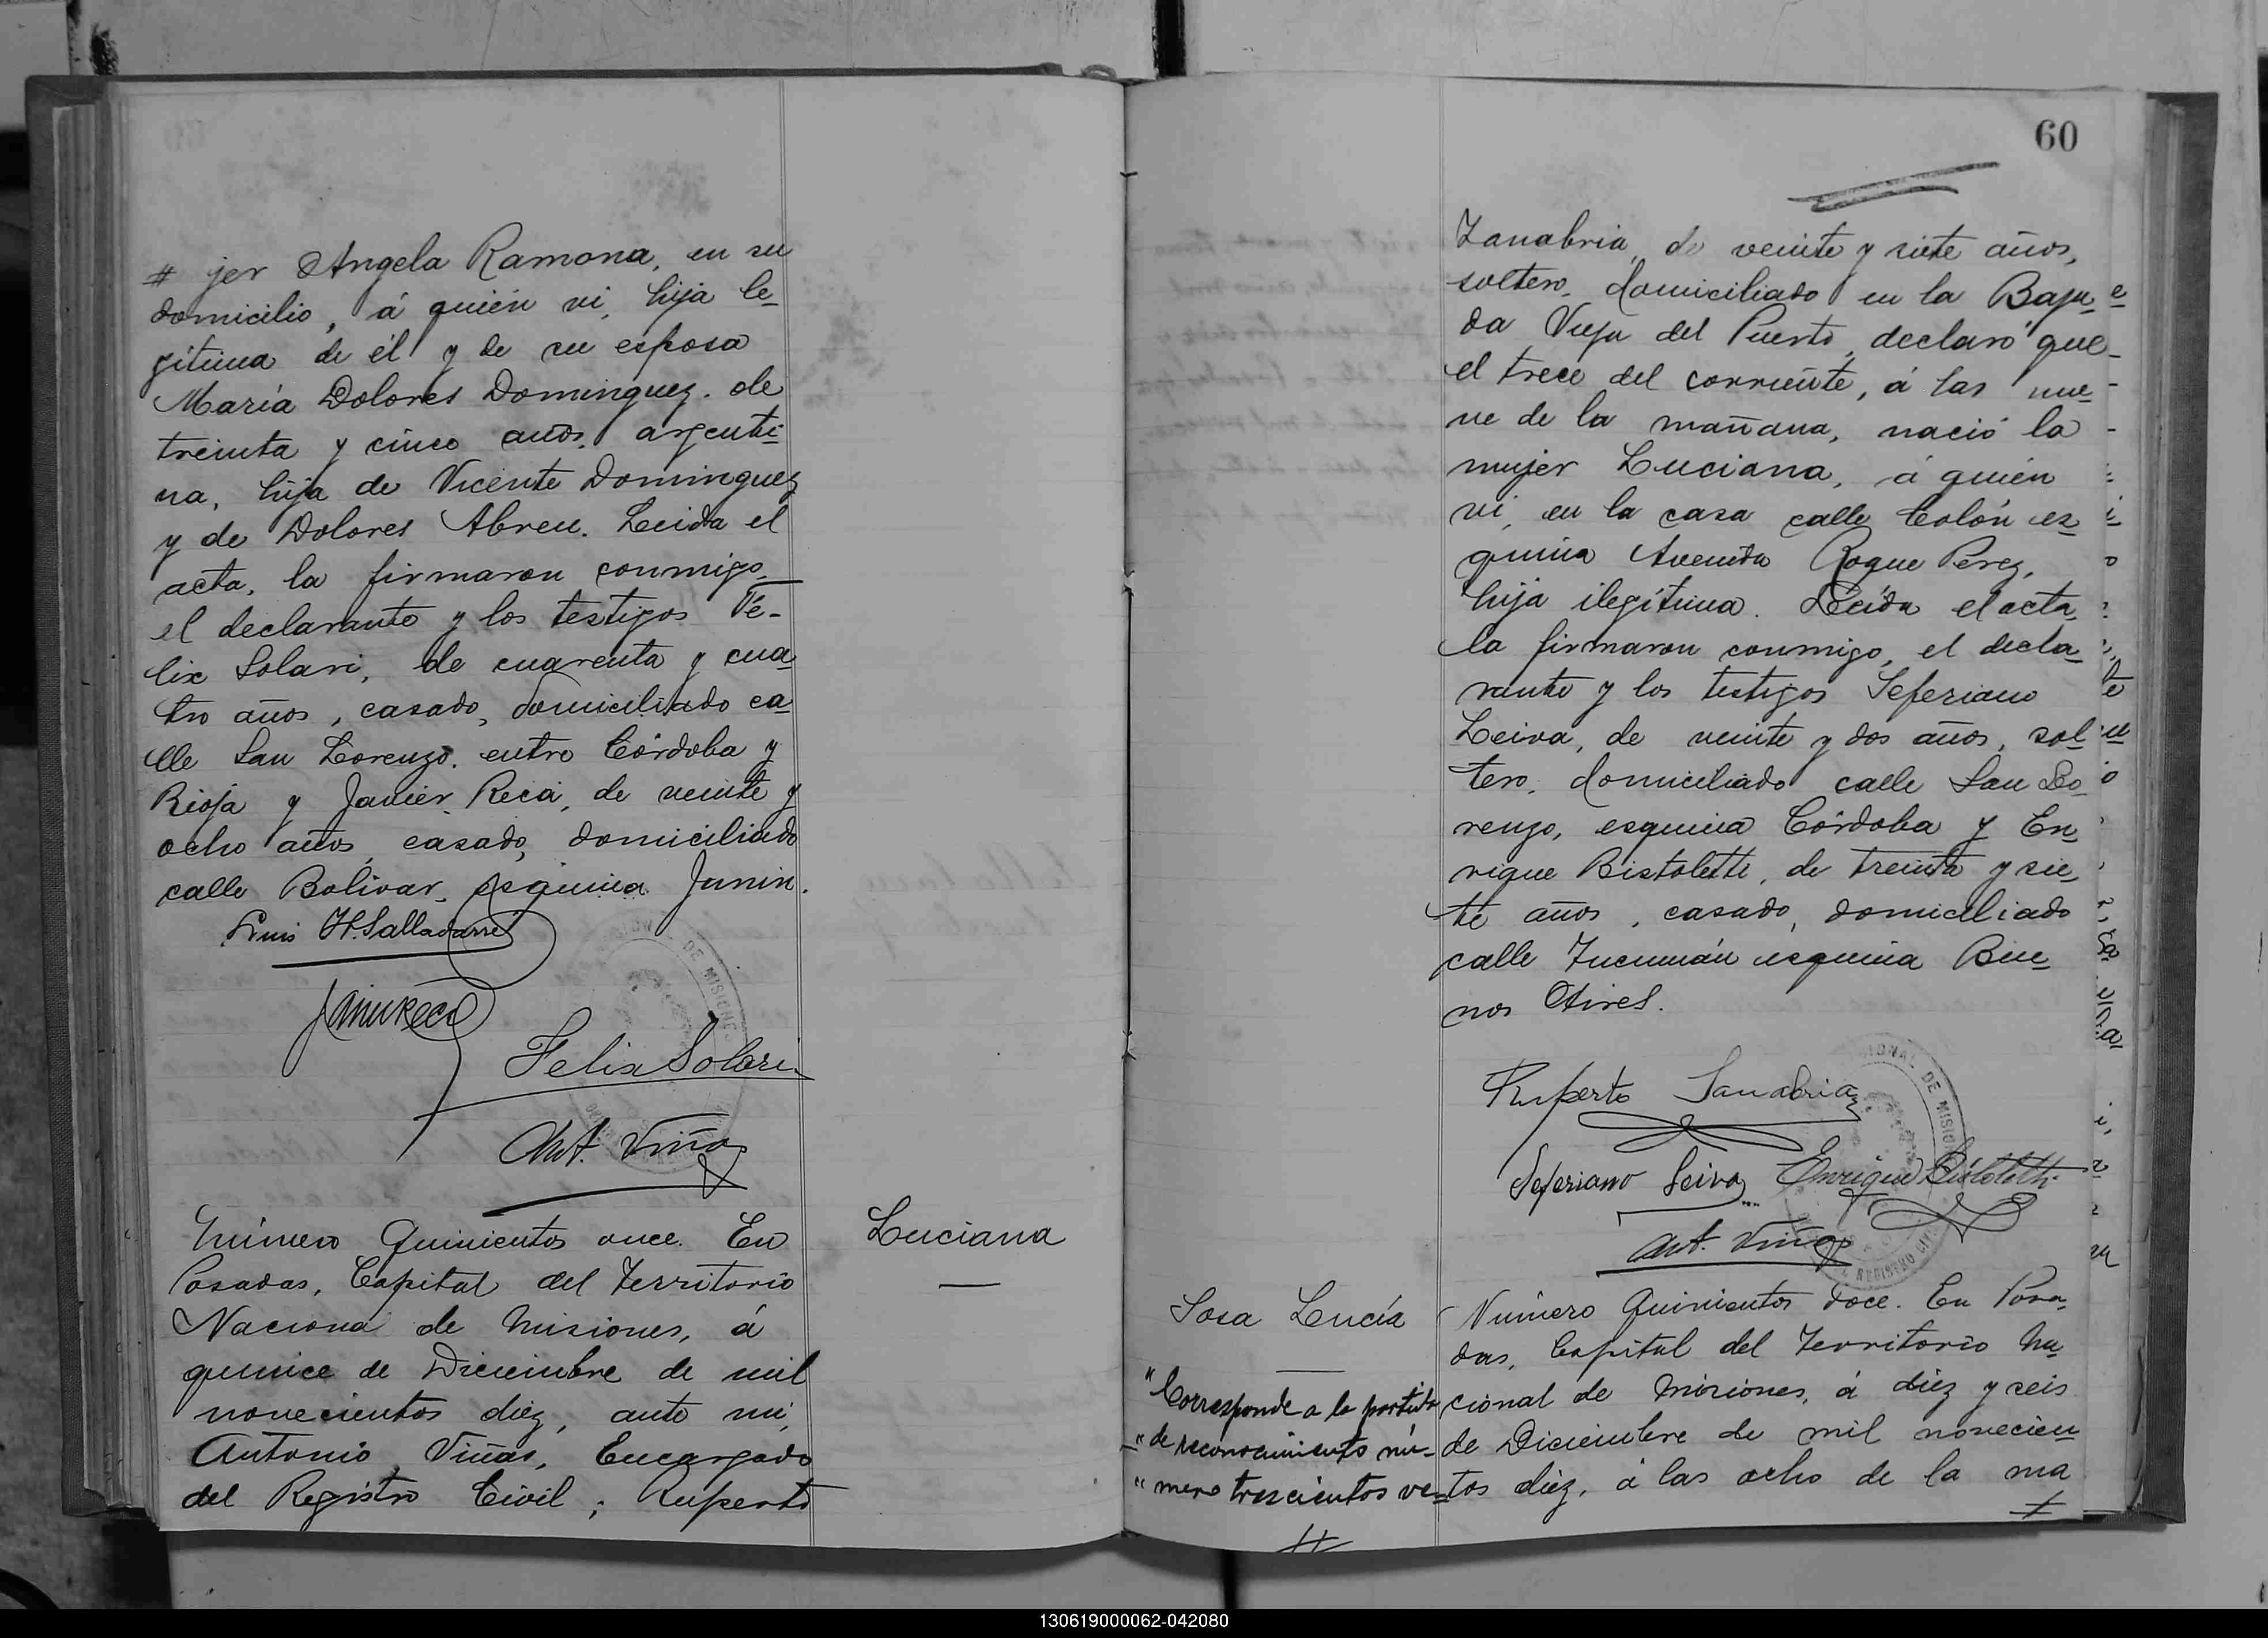 # jer Angela Ramona, en su
domicilio, á quién vi, hija le-
gitima de él y de su esposa
María Dolores Dominguez, de
treinta y cinco años, argenti-
na, hija de Vicente Dominguez
y de Dolores Abreu. Leida el
acta, la firmaron conmigo,
el declarante y los testigos Fé-
lix Solari, de cuarenta y cua
tro años, casado, domiciliado ca-
lle San Lorenzo, entre Córdoba y
Rioja y Javier Reca, de veinte y
ocho años, casado, domiciliado
calle Bolivar, esquina Junin.
Luis H. Salladarré
Felix Solari
Ant. Viñas
Número Quinientos once. En
Posadas, Capital del Territorio
Nacional de Misiones, á
quince de Diciembre de mil
novecientos diez, ante mi,
Antonio Viñas, Encargado
del Registro Civil; Ruperto
Luciana
60
Zanabria, de veinte y siete años,
soltero, domiciliado en la Baja-
da Vieja del Puerto, declaró que
el trece del corriente, á las nue-
ve de la mañana, nació la
mujer Luciana, á quién
vi, en la casa calle Colón es-
quina Avenida Roque Perez,
hija ilegítima. Leída el acta,
la firmaron conmigo, el decla-
rante y los testigos Seferiano
Leiva, de veinte y dos años, sol-
tero, domiciliado calle San Lo-
renzo, esquina Córdoba y En-
rique Bistoletti, de treinta y sie-
te años, casado, domiciliado
calle Tucumán esquina Bue-
nos Aires.
Ruperto Sanabria
Seferiano Leiva Enrique Bistoletti
Ant. Viñas
Sosa Lucía
"Corresponde a la partida
"de reconocimiento nú-
"mero trescientos ve-
#
Número Quinientos doce. En Posa-
das, Capital del Territorio Na-
cional de Misiones, á diez y seis
de Diciembre de mil novecien-
tos diez, á las ocho de la ma
130619000062-042080